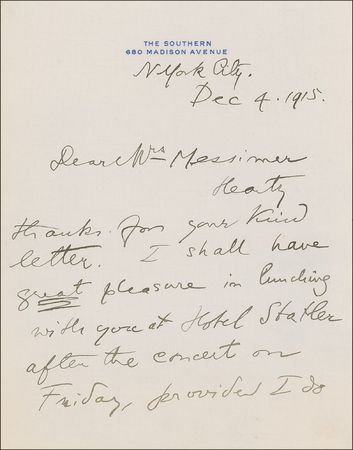 THE SOUTHERN
680 MADISON AVENUE
N-York City.
Dec 4. 1915.
Dear Mrs Messimer
Hearty
thanks for your kind
letter. I shall have
great pleasure in lunching
with you at Hotel Statler
after the concert on
Friday, provided I do